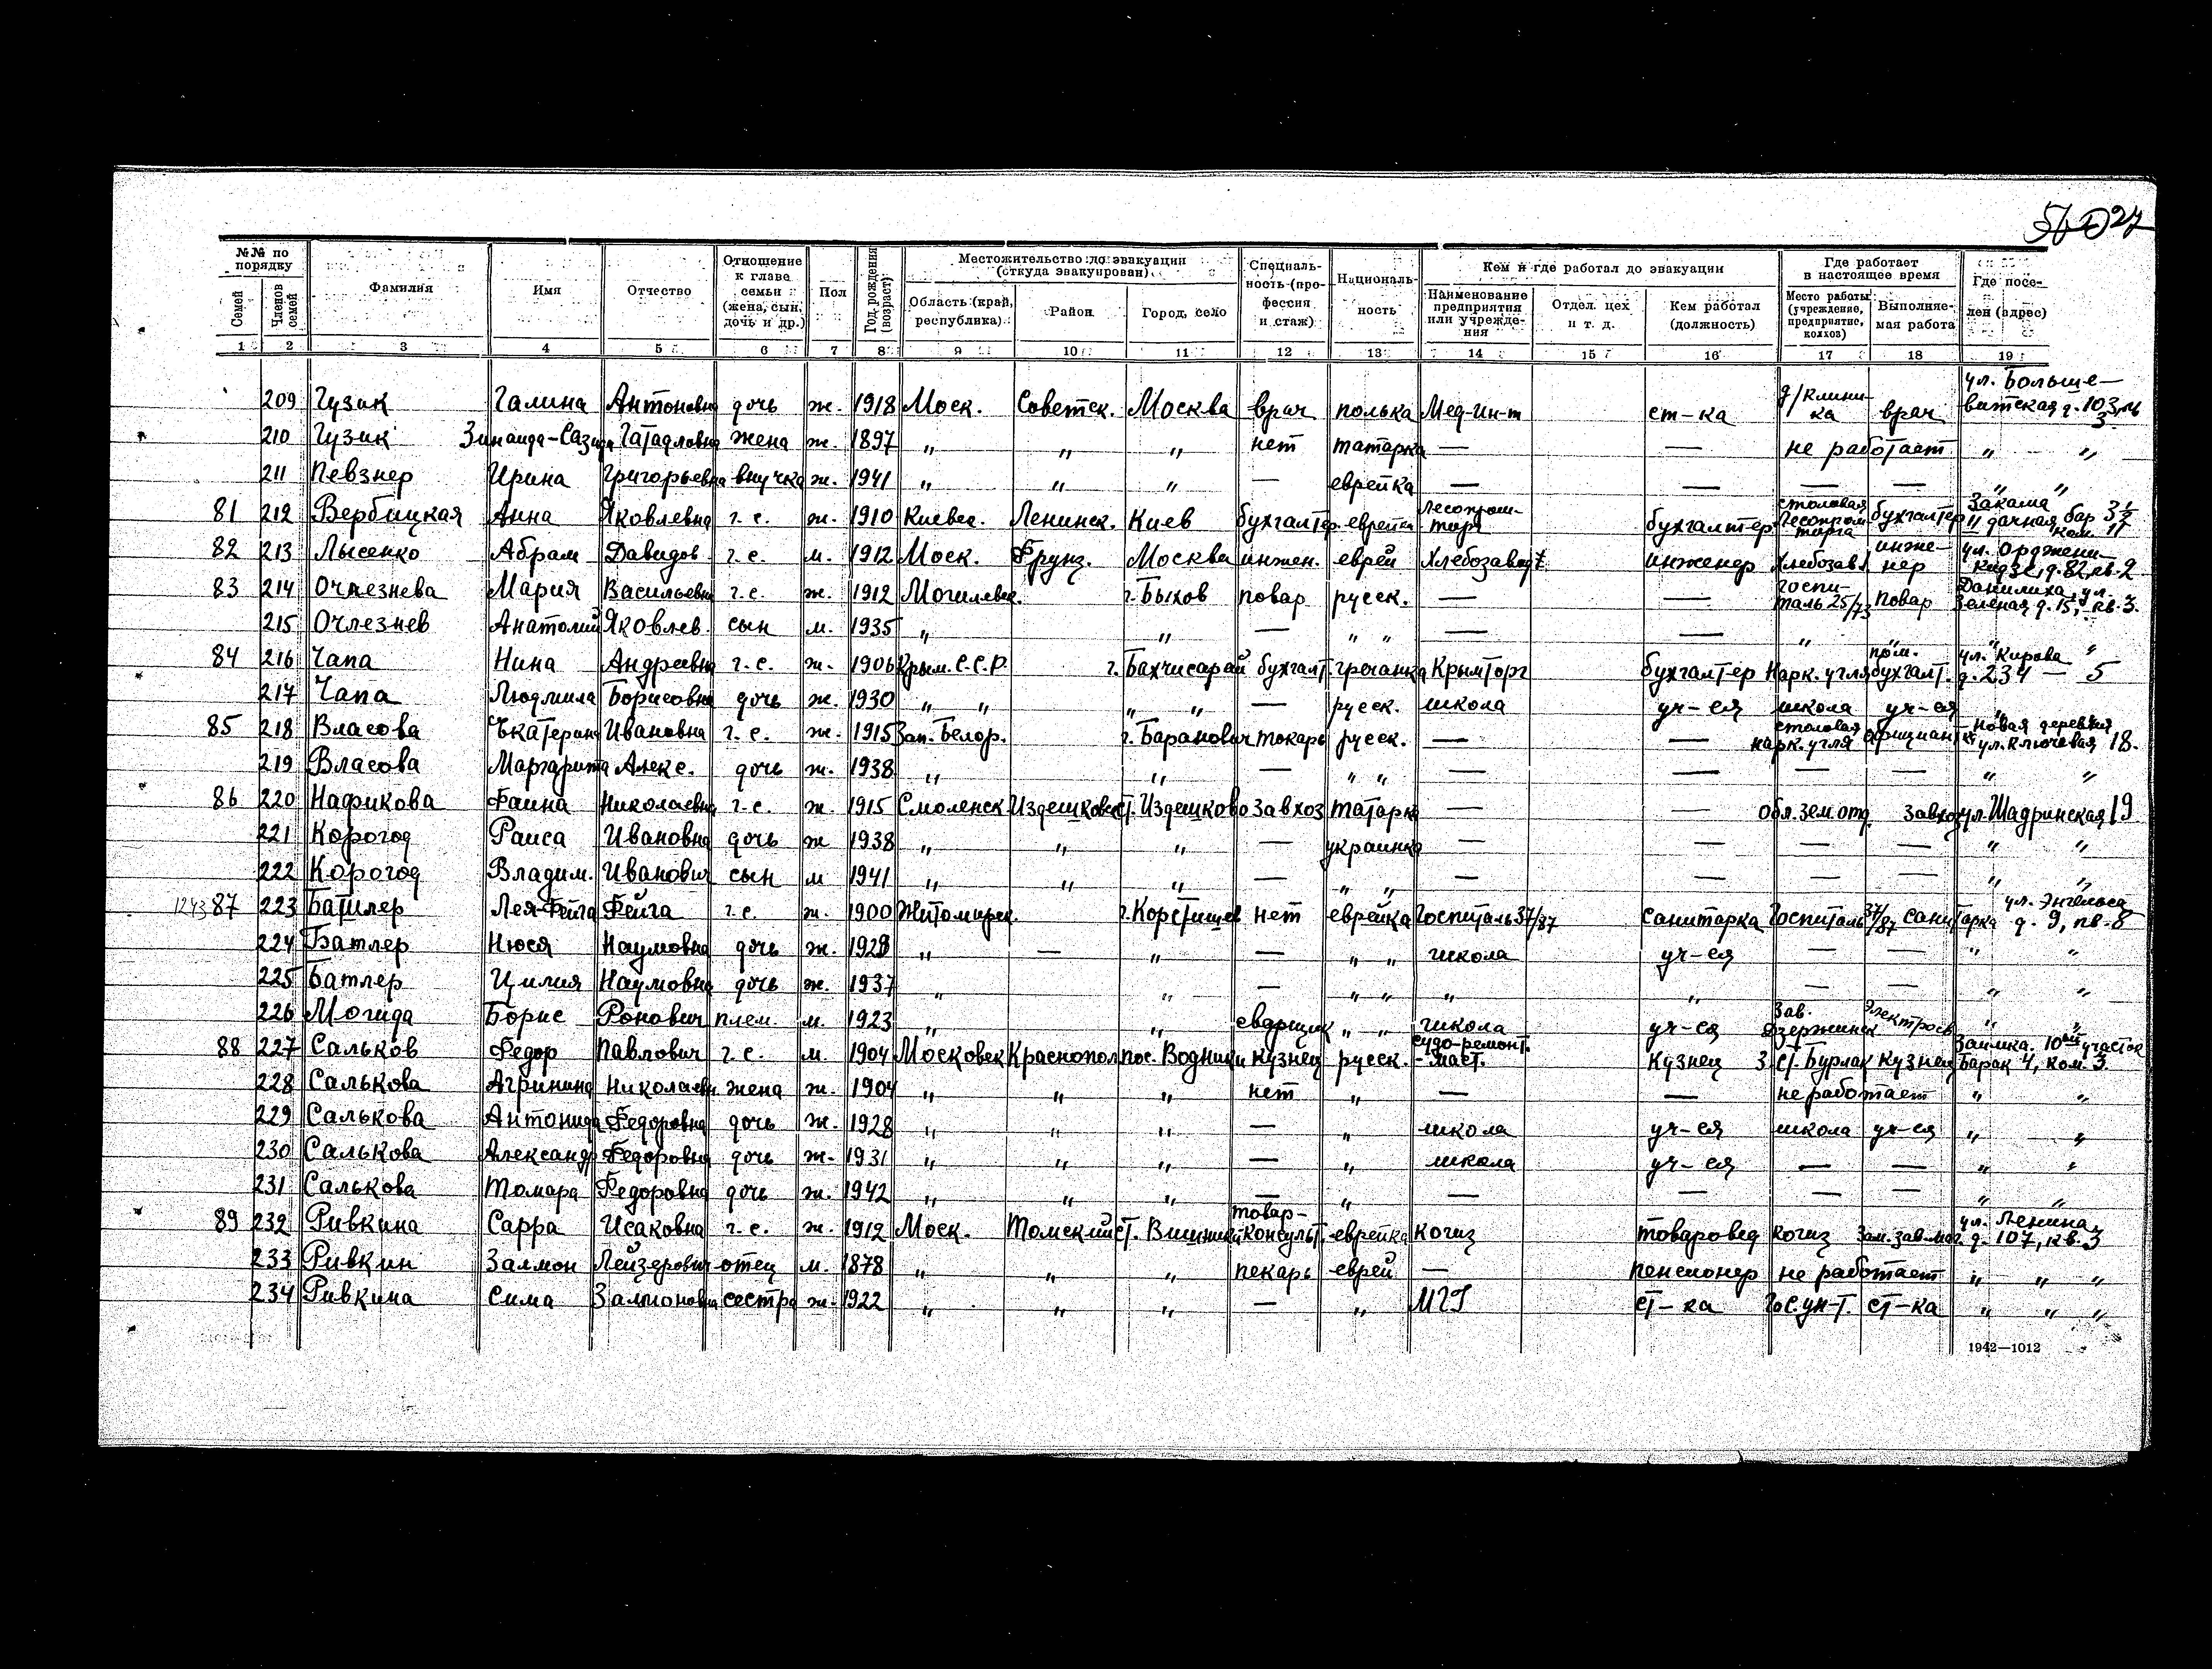 27
№№ по порядку
Фамилия
Имя
Отчество
Отношение к главе семьи (жена, сын, дочь и др.)
Пол
Год рождения (возраст)
Местожительство до эвакуации (откуда эвакуирован)
Специальность (профессия и стаж)
Националь-ность
Кем и где работал до эвакуации
Где работает в настоящее время
Где посе-лен (адрес)
Семей
Членов семей
Область (край, республика)
Район
Город, село
Наименование предприятия или учрежде-ния
Отдел. цех и т. д.
Кем работал (должность)
Место работы (учреждение, предприятие, колхоз)
Выполняе-мая работа
1 2 3 4 5 6 7 8 9 10 11 12 13 14 15 16 17 18 19
209 Гузик Галина Антоновна дочь ж. 1918 Моск. Советск. Москва врач полька Мед-ин-т ст-ка врач ул. Больше-вистская д. 103
210 Гузик Зинаида- жена ж. 1897 " " " нет татарка — — не работает " "
211 Певзнер Ирина Григорьевна внучка ж. 1941 " " " — еврейка — — — — " "
81 212 Вербицкая Анна Яковлевна г.с. ж. 1910 Киевск. Ленинск. Киев бухгалтер еврейка Леспром-торг бухгалтер столовая Леспром торга бухгалтер Закама
82 213 Лысенко Абрам Давидов. г.с. м. 1912 Моск. Фрунз. Москва инжен. еврей Хлебозавод инженер Хлебозав. инже-нер ул. Орджени-кидзе, д. 82, кв. 2
83 214 Мария Васильевна г.с. ж. 1912 Могилевск. г. Быхов повар русск. — — госпи-таль 25/73 повар Данилиха, ул. Зеленая д. 15, кв. 3.
215 Очлезнев Анатолий Яковлев. сын м. 1935 " " — " " — — " " " "
84 216 Чапа Нина Андреевна г.с. ж. 1906 Крым. С.С.Р. г. Бахчисарай бухгалт. гречанка Крымторг бухгалтер Нарк. угля бухгалт. ул. Кирова д. 234 — 5
217 Чапа Людмила Борисовна дочь ж. 1930 " " " " — русск. школа уч-ся школа уч-ся "
85 218 Власова Екатерина Ивановна г.с. ж. 1915 Зап. Белор. г. Баранович токарь русск. — — столовая нарк. угля официантка Новая деревня ул. Ключевая 18.
219 Власова Маргарита Алекс. дочь ж. 1938 " " — " " — — — — " "
86 220 Нафикова Фаина Николаевна г.с. ж. 1915 Смоленск Издешковск ст. Издешково завхоз татарка — — Обл. зем. отд. завхоз ул. Шадринская 19
221 Корогод Раиса Ивановна дочь ж 1938 " " " — украинка — — — — " "
222 Корогод Владим. Иванович сын м 1941 " " " — " " — — — — " "
1243 87 223 Батлер Лея-Фейга Фейга г.с. ж. 1900 Житомирск. г. Коростишев нет еврейка Госпиталь 37/87 санитарка Госпиталь 37/87 санитарка ул. Энгельса д. 9, кв. 8
224 Батлер Нюся Наумовна дочь ж. 1928 " — " — " " школа уч-ся — — " "
225 Батлер Цилия Наумовна дочь ж. 1937 " " — " " " " — — " "
226 Могида Борис Ронович плем. м. 1923 " " сварщик " " школа уч-ся Зав. Дзержинск электросв " "
88 227 Сальков Федор Павлович г.с. м. 1904 Московск Краснопол пос. Водники кузнец русск. судо-ремонт. маст. Кузнец З-т ст. Бурлак кузнец Заимка. 10ый участок Барак 4, ком. 3.
228 Салькова Агрипина Николаевн. жена ж. 1904 " " " нет " — — не работает " "
229 Салькова Антонида Федоровна дочь ж. 1928 " " " — " школа уч-ся школа уч-ся " "
230 Салькова Александр Федоровна дочь ж. 1931 " " " — " школа уч-ся — — " "
231 Салькова Томара Федоровна дочь ж. 1942 " " " — " — — — — " "
89 232 Ривкина Сарра Исаковна г.с. ж. 1912 Моск. Томский ст. товар-консульт. еврейка когиз товаровед когиз зам. зав. маг. ул. Ленина д. 107, кв. 3
233 Ривкин Залмон Лейзерович отец м. 1878 " " " пекарь еврей — пенсионер не работает " " "
234 Ривкина Сима Залмоновна сестра ж. 1922 " " " — " МГУ ст-ка Гос. ун-т. ст-ка " " "
1942—1012